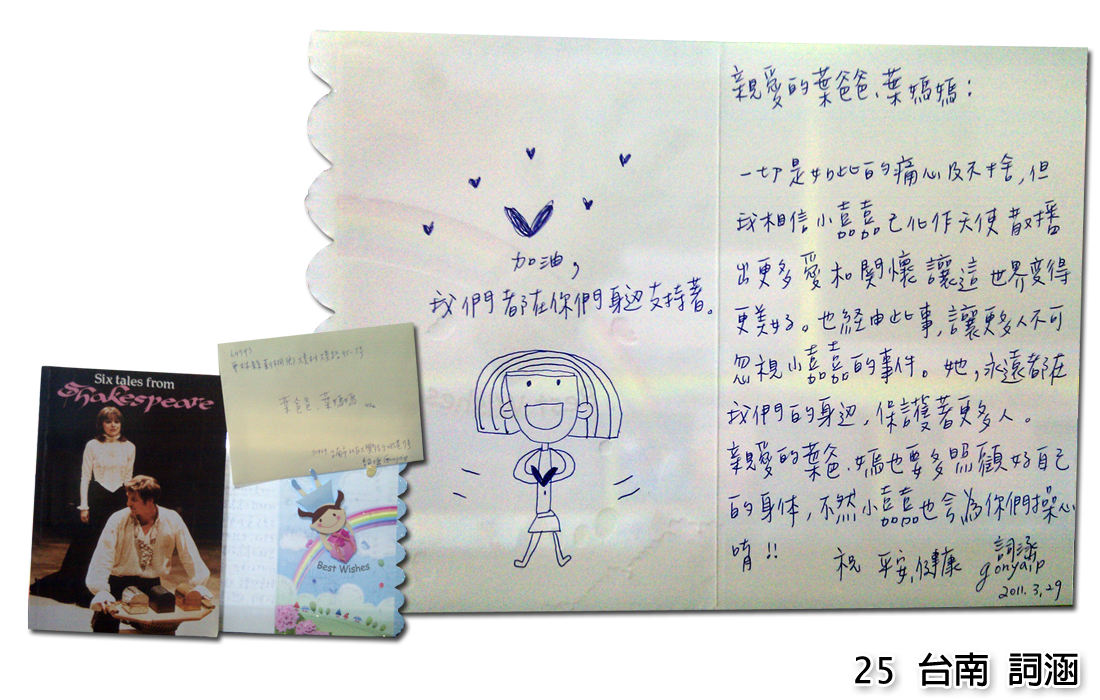 親愛的葉爸爸、葉媽媽：
一切是如此的痛心及不捨，但
我相信小嘉嘉已化作天使散播
出更多愛和関懷讓這世界变得
更美好。也経由此事，讓更多人不可
忽視小嘉嘉的事件。她，永遠都在
我們的身边，保護著更多人。
親愛的葉爸、媽也要多照顧好自己
的身体，不然小嘉嘉也会為你們操心
唷!!
祝 平安，健康
詞涵
2011.3.29
加油，
我們都在你們身边支持著。
葉爸爸、葉媽媽
Six tales from
Shakespeare
Best Wishes
25 台南 詞涵